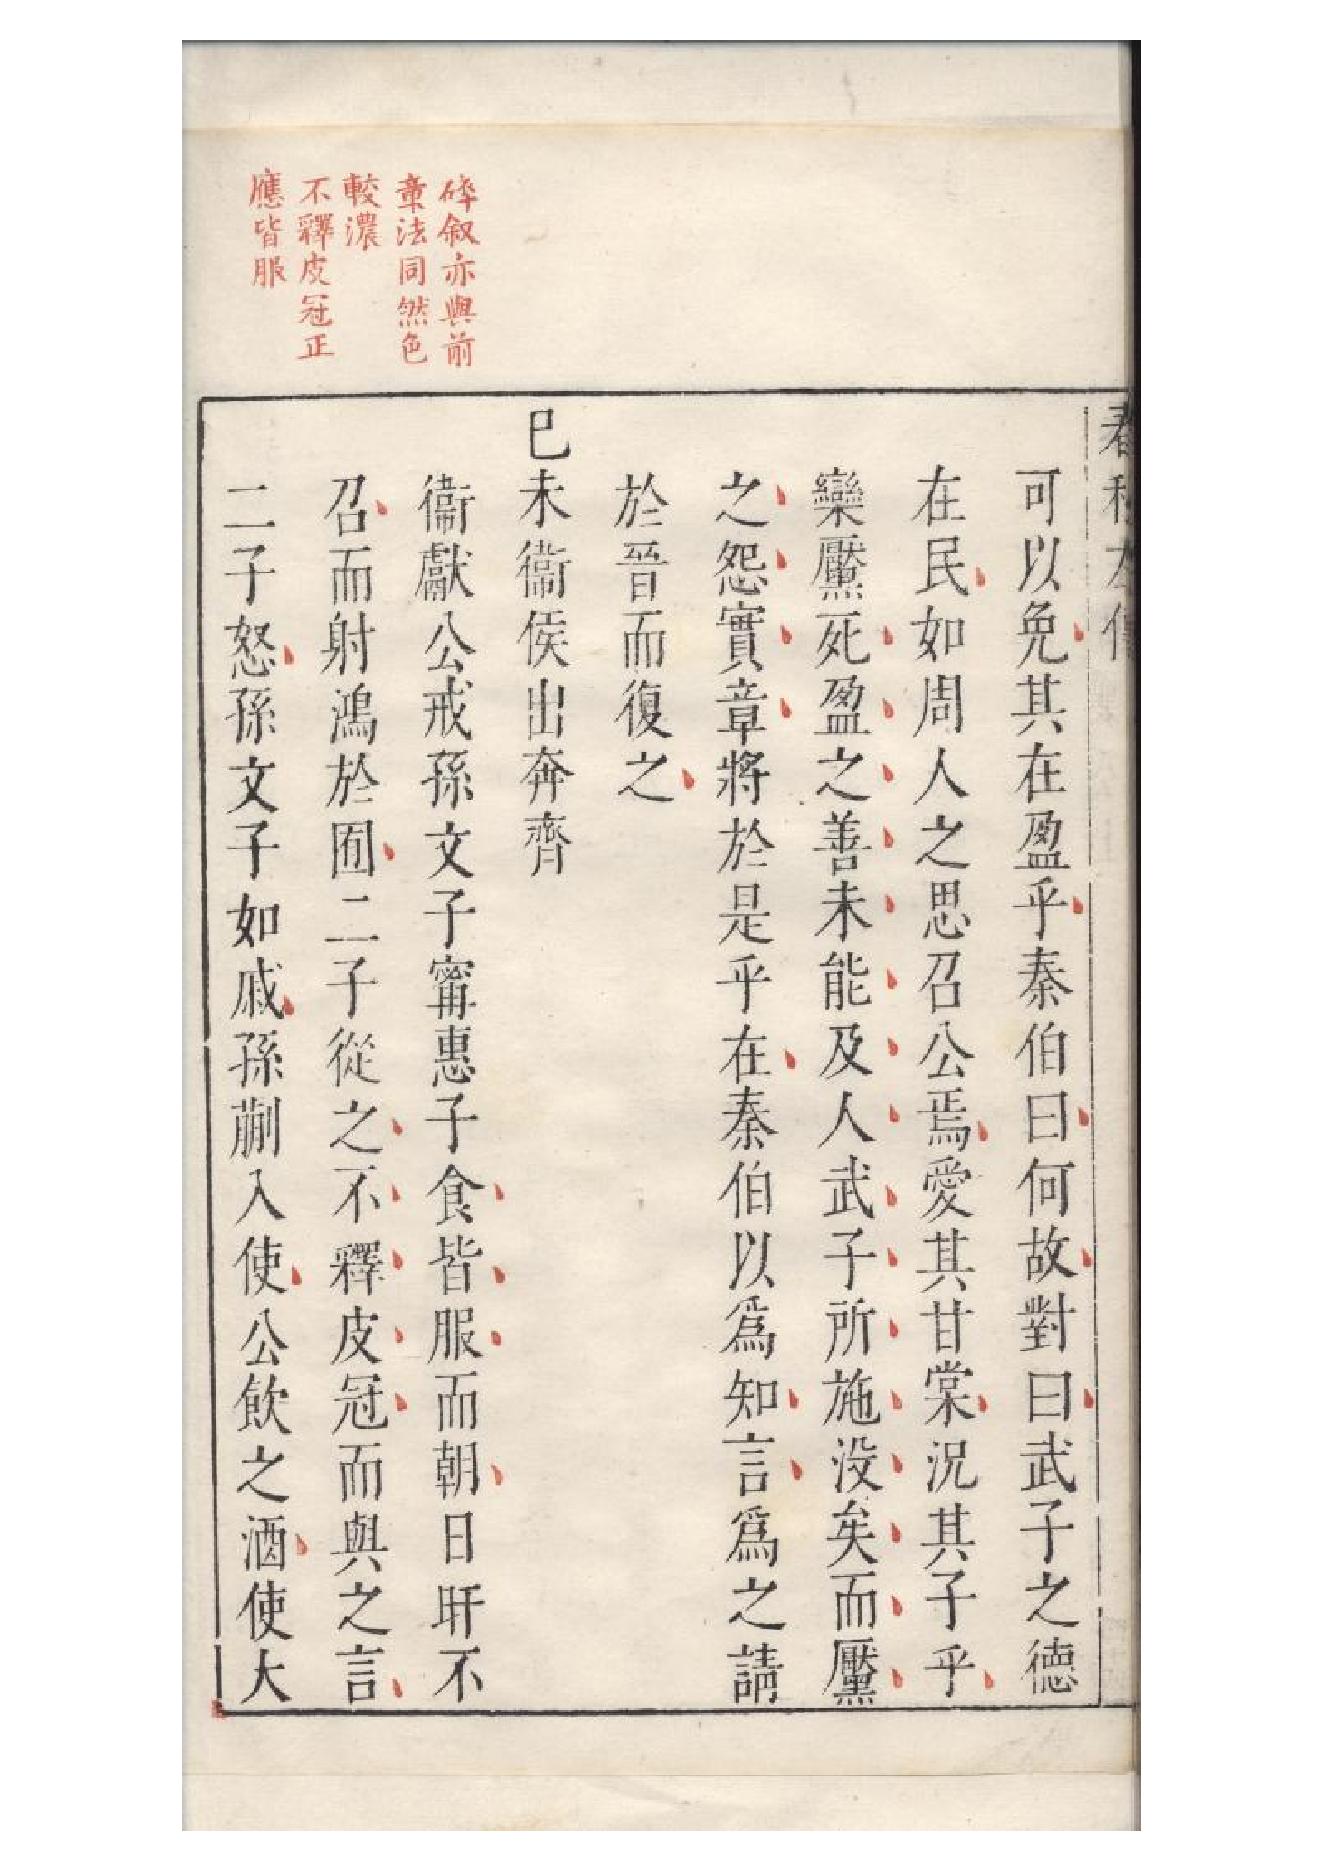 碎叙亦與前
章法同然色
較濃
不釋皮冠正
應皆服
春秋左傳
可以免其在盈乎秦伯曰何故對曰武子之德
在民如周人之思召公焉愛其甘棠況其子乎
欒黶死盈之善未能及人武子所施没矣而黶
之怨實章將於是乎在秦伯以爲知言爲之請
於晉而復之
巳未衞侯出奔齊
衞獻公戒孫文子甯惠子食皆服而朝日旰不
召而射鴻於囿二子從之不釋皮冠而與之言
二子怒孫文子如戚孫蒯入使公飲之酒使大